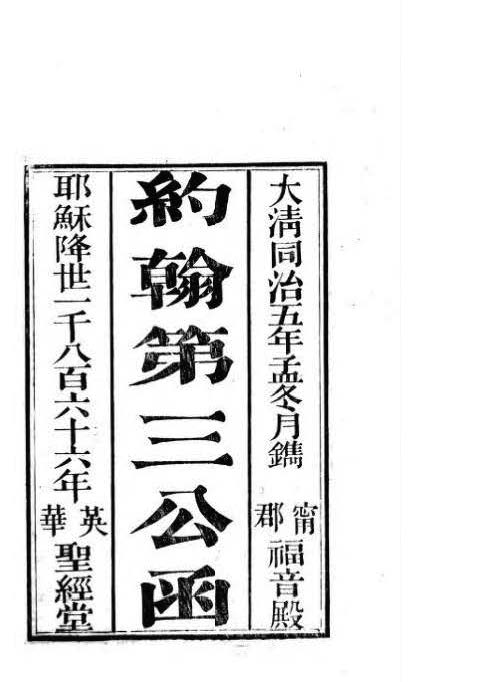 大清同治五年孟冬月鐫
甯郡福音殿
約翰第三公函
耶穌降世一千八百六十六年
英華聖經堂